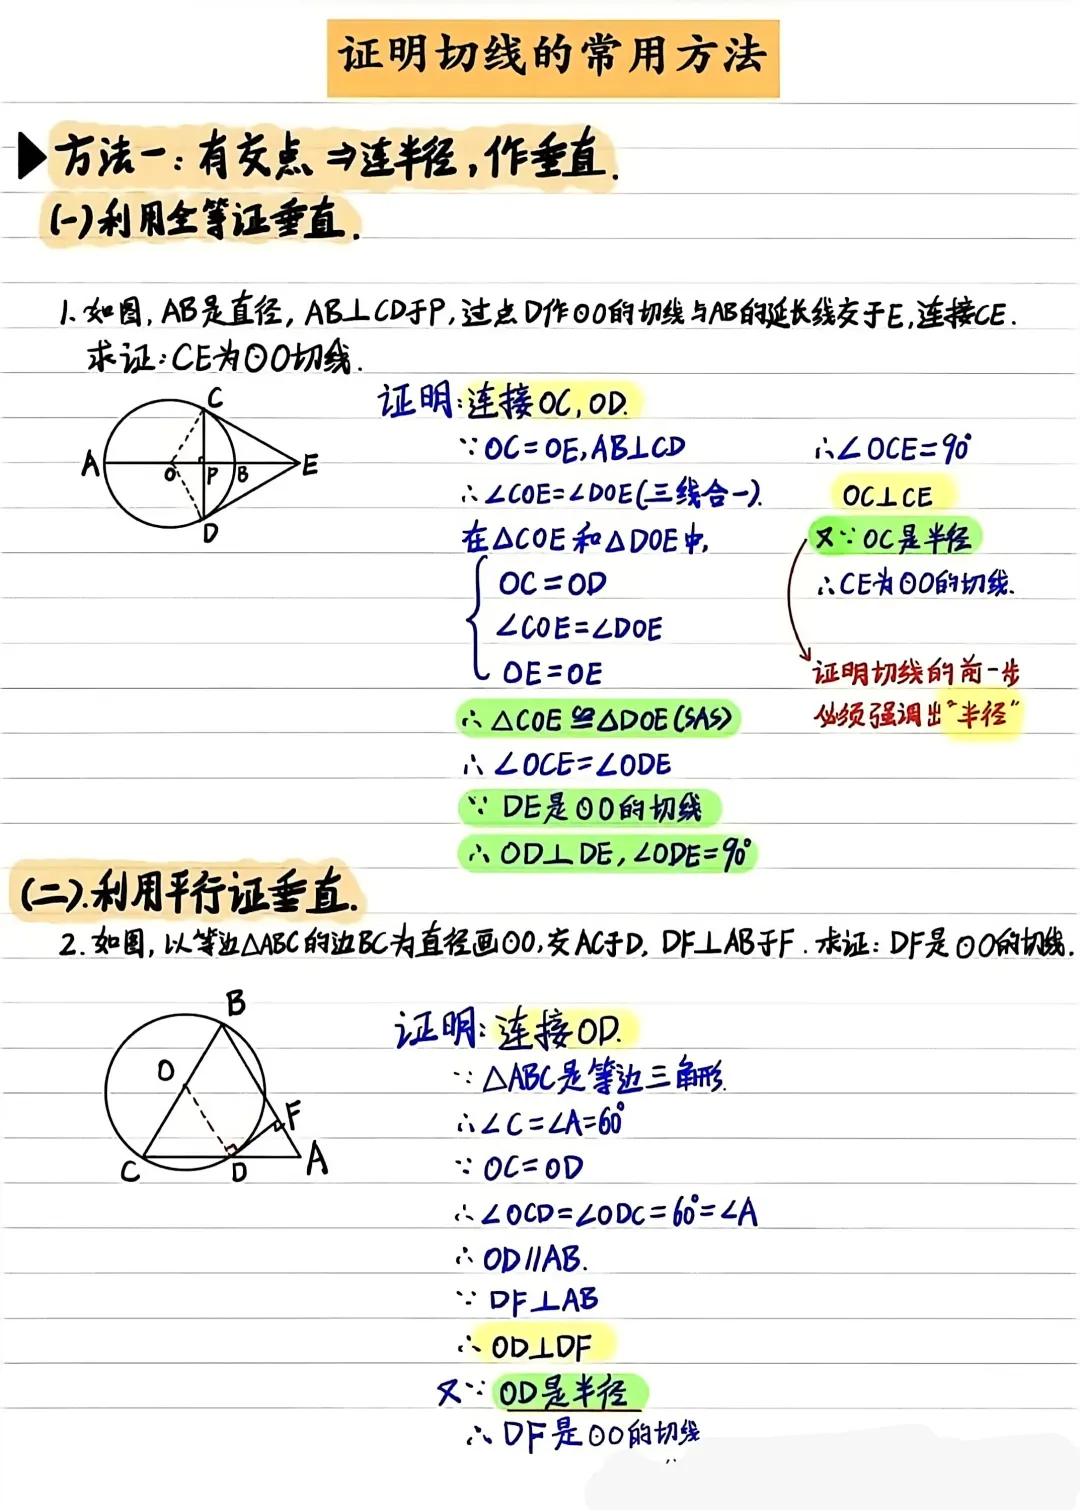 证明切线的常用方法
方法一：有交点⇒连半径,作垂直.
(一)利用全等证垂直.
1.如图,AB是直径,AB⊥CD于P,过点D作⊙O的切线与AB的延长线交于E,连接CE.
求证:CE为⊙O切线.
C
A
O
P
B
E
D
证明:连接OC,OD.
∵OC=OE,AB⊥CD
∴∠COE=∠DOE(三线合一).
在△COE和△DOE中,
OC=OD
∠COE=∠DOE
OE=OE
∴△COE≌△DOE(SAS)
∴∠OCE=∠ODE
∵DE是⊙O的切线
∴OD⊥DE,∠ODE=90°
∴∠OCE=90°
OC⊥CE
又∵OC是半径
∴CE为⊙O的切线.
证明切线的前一步
必须强调出"半径"
(二).利用平行证垂直.
2.如图,以等边△ABC的边BC为直径画⊙O,交AC于D,DF⊥AB于F.求证:DF是⊙O的切线.
B
O
F
C
D
A
证明:连接OD.
∵△ABC是等边三角形.
∴∠C=∠A=60°
∵OC=OD
∴∠OCD=∠ODC=60°=∠A
∴OD∥AB.
∵DF⊥AB
∴OD⊥DF
又∵OD是半径
∴DF是⊙O的切线